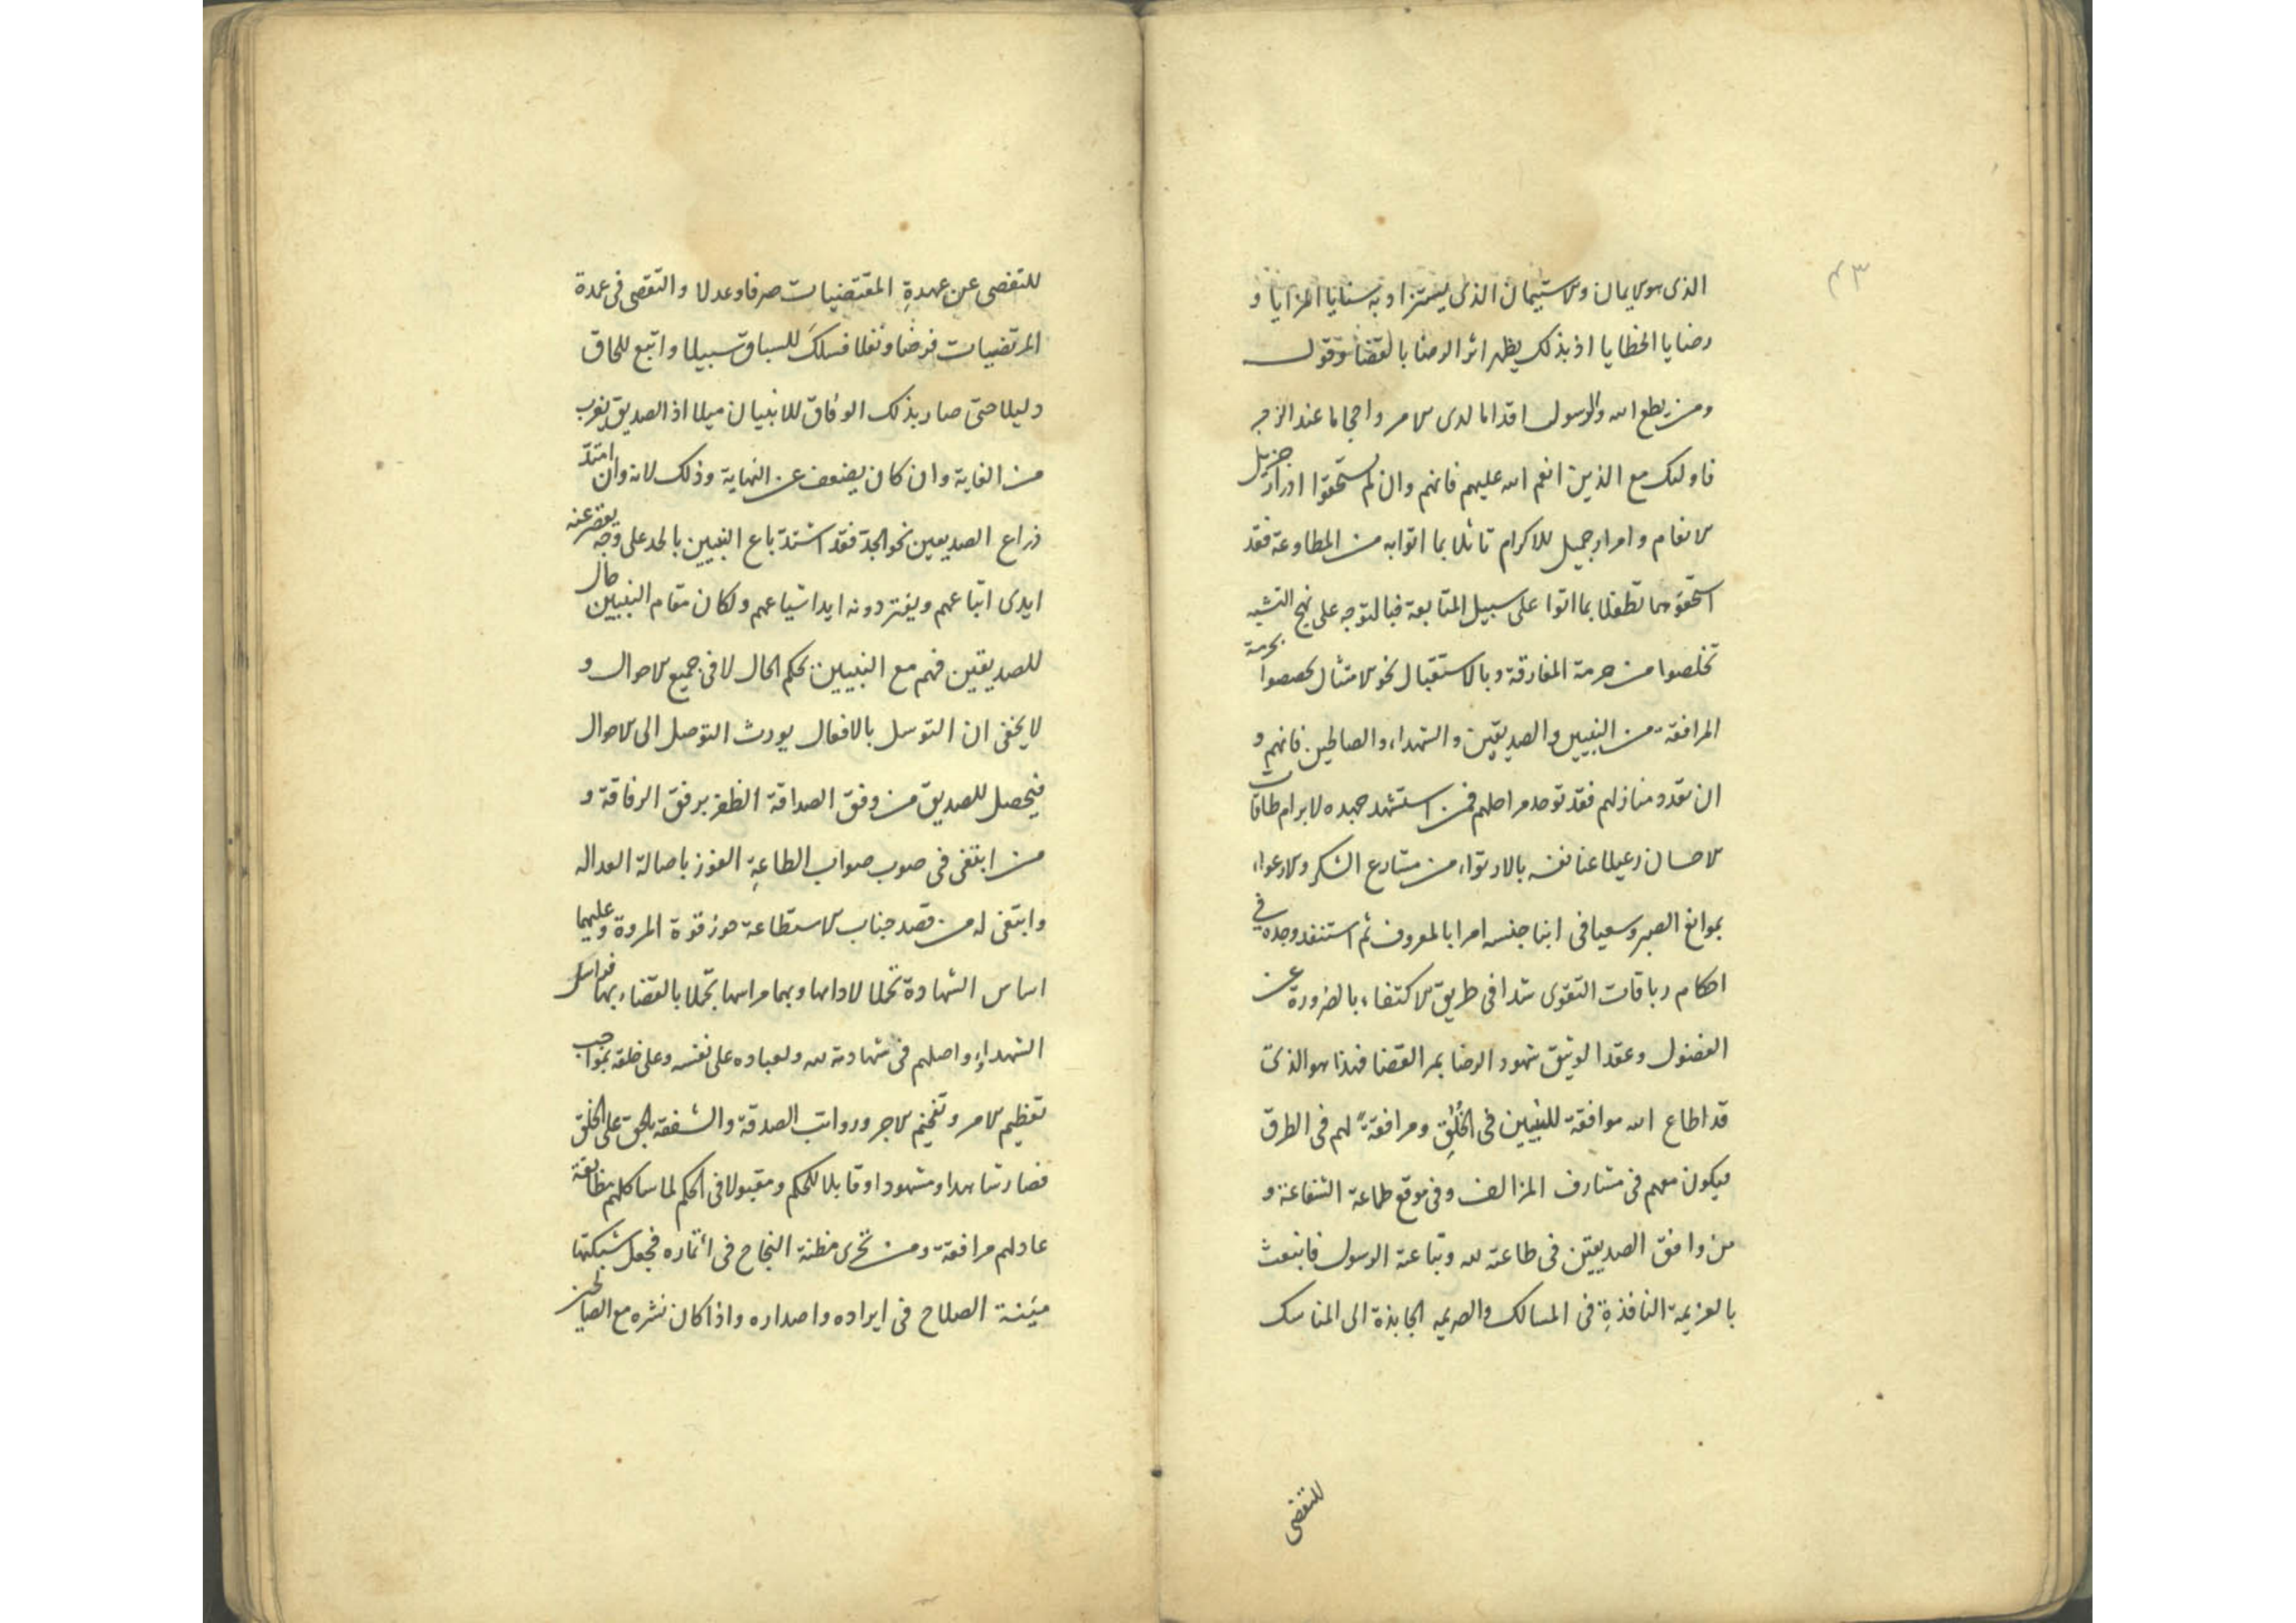 ٤٣
الذى هو الايمان والاستيمان الذى به سنايا المزايا و
رضايا الخطايا اذ بذلك يظهر اثر الرضا بالقضا وقوله
ومن يطع الله والرسول اقداما لدى الامر واحجاما عند الزجر
فاولئك مع الذين انعم الله عليهم فانهم وان لم يستحقوا ادرار جزيل
الانعام وامرار جميل الاكرام تاثلا بما اتوا به من المطاوعة فقد
استحقوهما تطفلا بما اتوا على سبيل المتابعة فبالتوجه على نهج التشبه
تخلصوا من حرمة المفارقة وبالاستقبال نحو الامتثال تخصصوا بحرمة
المرافقة من النبيين والصديقين والشهداء والصالحين فانهم و
ان تعدد منازلهم فقد توحد مراحلهم فمن استشهد جهده لابرام طاقات
الاحسان رعيا عنا نفسه بالارتواء من مشارع الشكر والارعواء
بموانع الصبر وسعيا فى ابنا جنسه امرا بالمعروف ثم استنفد وجده فى
احكام رباقات التقوى شدا فى طريق الاكتفاء بالضرورة عن
الفضول وعقدا لوثيق شهود الرضا بمر القضا فهذا هو الذى
قد اطاع الله موافقة للنبيين فى الخلق ومرافقة لهم فى الطرق
فيكون معهم فى مشارف المزالف وفى موقع طماعة الشفاعة و
من وافق الصديقين فى طاعة الله وتباعة الرسول فانبعث
بالعزيمة النافذة فى المسالك والصريمه الجابذة الى المناسك
للتفصى
للتفصى عن عهدة المقتضيات صرفا وعدلا والتقصى فى عمدة
المرتضيات فرضا ونفلا فسلك للسباق سبيلا واتبع للحاق
دليلا حتى صار بذلك الوفاق للانبيا ميلا اذ الصديق يقرب
من الغاية وان كان يضعف عن النهاية وذلك لانه وان امتد
ذراع الصديقين نحو الجد فقد اشتد باع النبيين بالحد على وجه يقصر عنه
ايدى اتباعهم ويفتر دونه ايد اشياعهم ولكان مقام النبيين حال
للصديقين فهم مع النبيين بحكم الحال لا فى جميع الاحوال و
لا يخفى ان التوسل بالافعال يورث التوصل الى الاحوال
فيحصل للصديق من وفق الصداقة الظفر برفق الرفاقة و
من ابتغى فى صوب صواب الطاعة الفوز باصالة العداله
وابتغى له من قصد جناب الاستطاعة حوز قوة المروة وعليهما
اساس الشهادة تحملا لاداها وبهما مراسها تجملا بالقضاء بها فواسل
الشهداء واصلهم فى شهادته لله ولعباده على نفسه وعلى خلقه بمواجب
تعظيم الامر وتفخيم الاجر ورواتب الصدقة والشفقه بالحق على الخلق
فصار شاهدا ومشهودا وقابلا للحكم ومقبولا فى الحكم لما شاكلهم مطابقة
عادلهم مرافقة ومن تحرى مظنة النجاح فى ائتماره فجعل شبكتها
مئنة الصلاح فى ايراده واصداره واذا كان نشره مع الصالحين